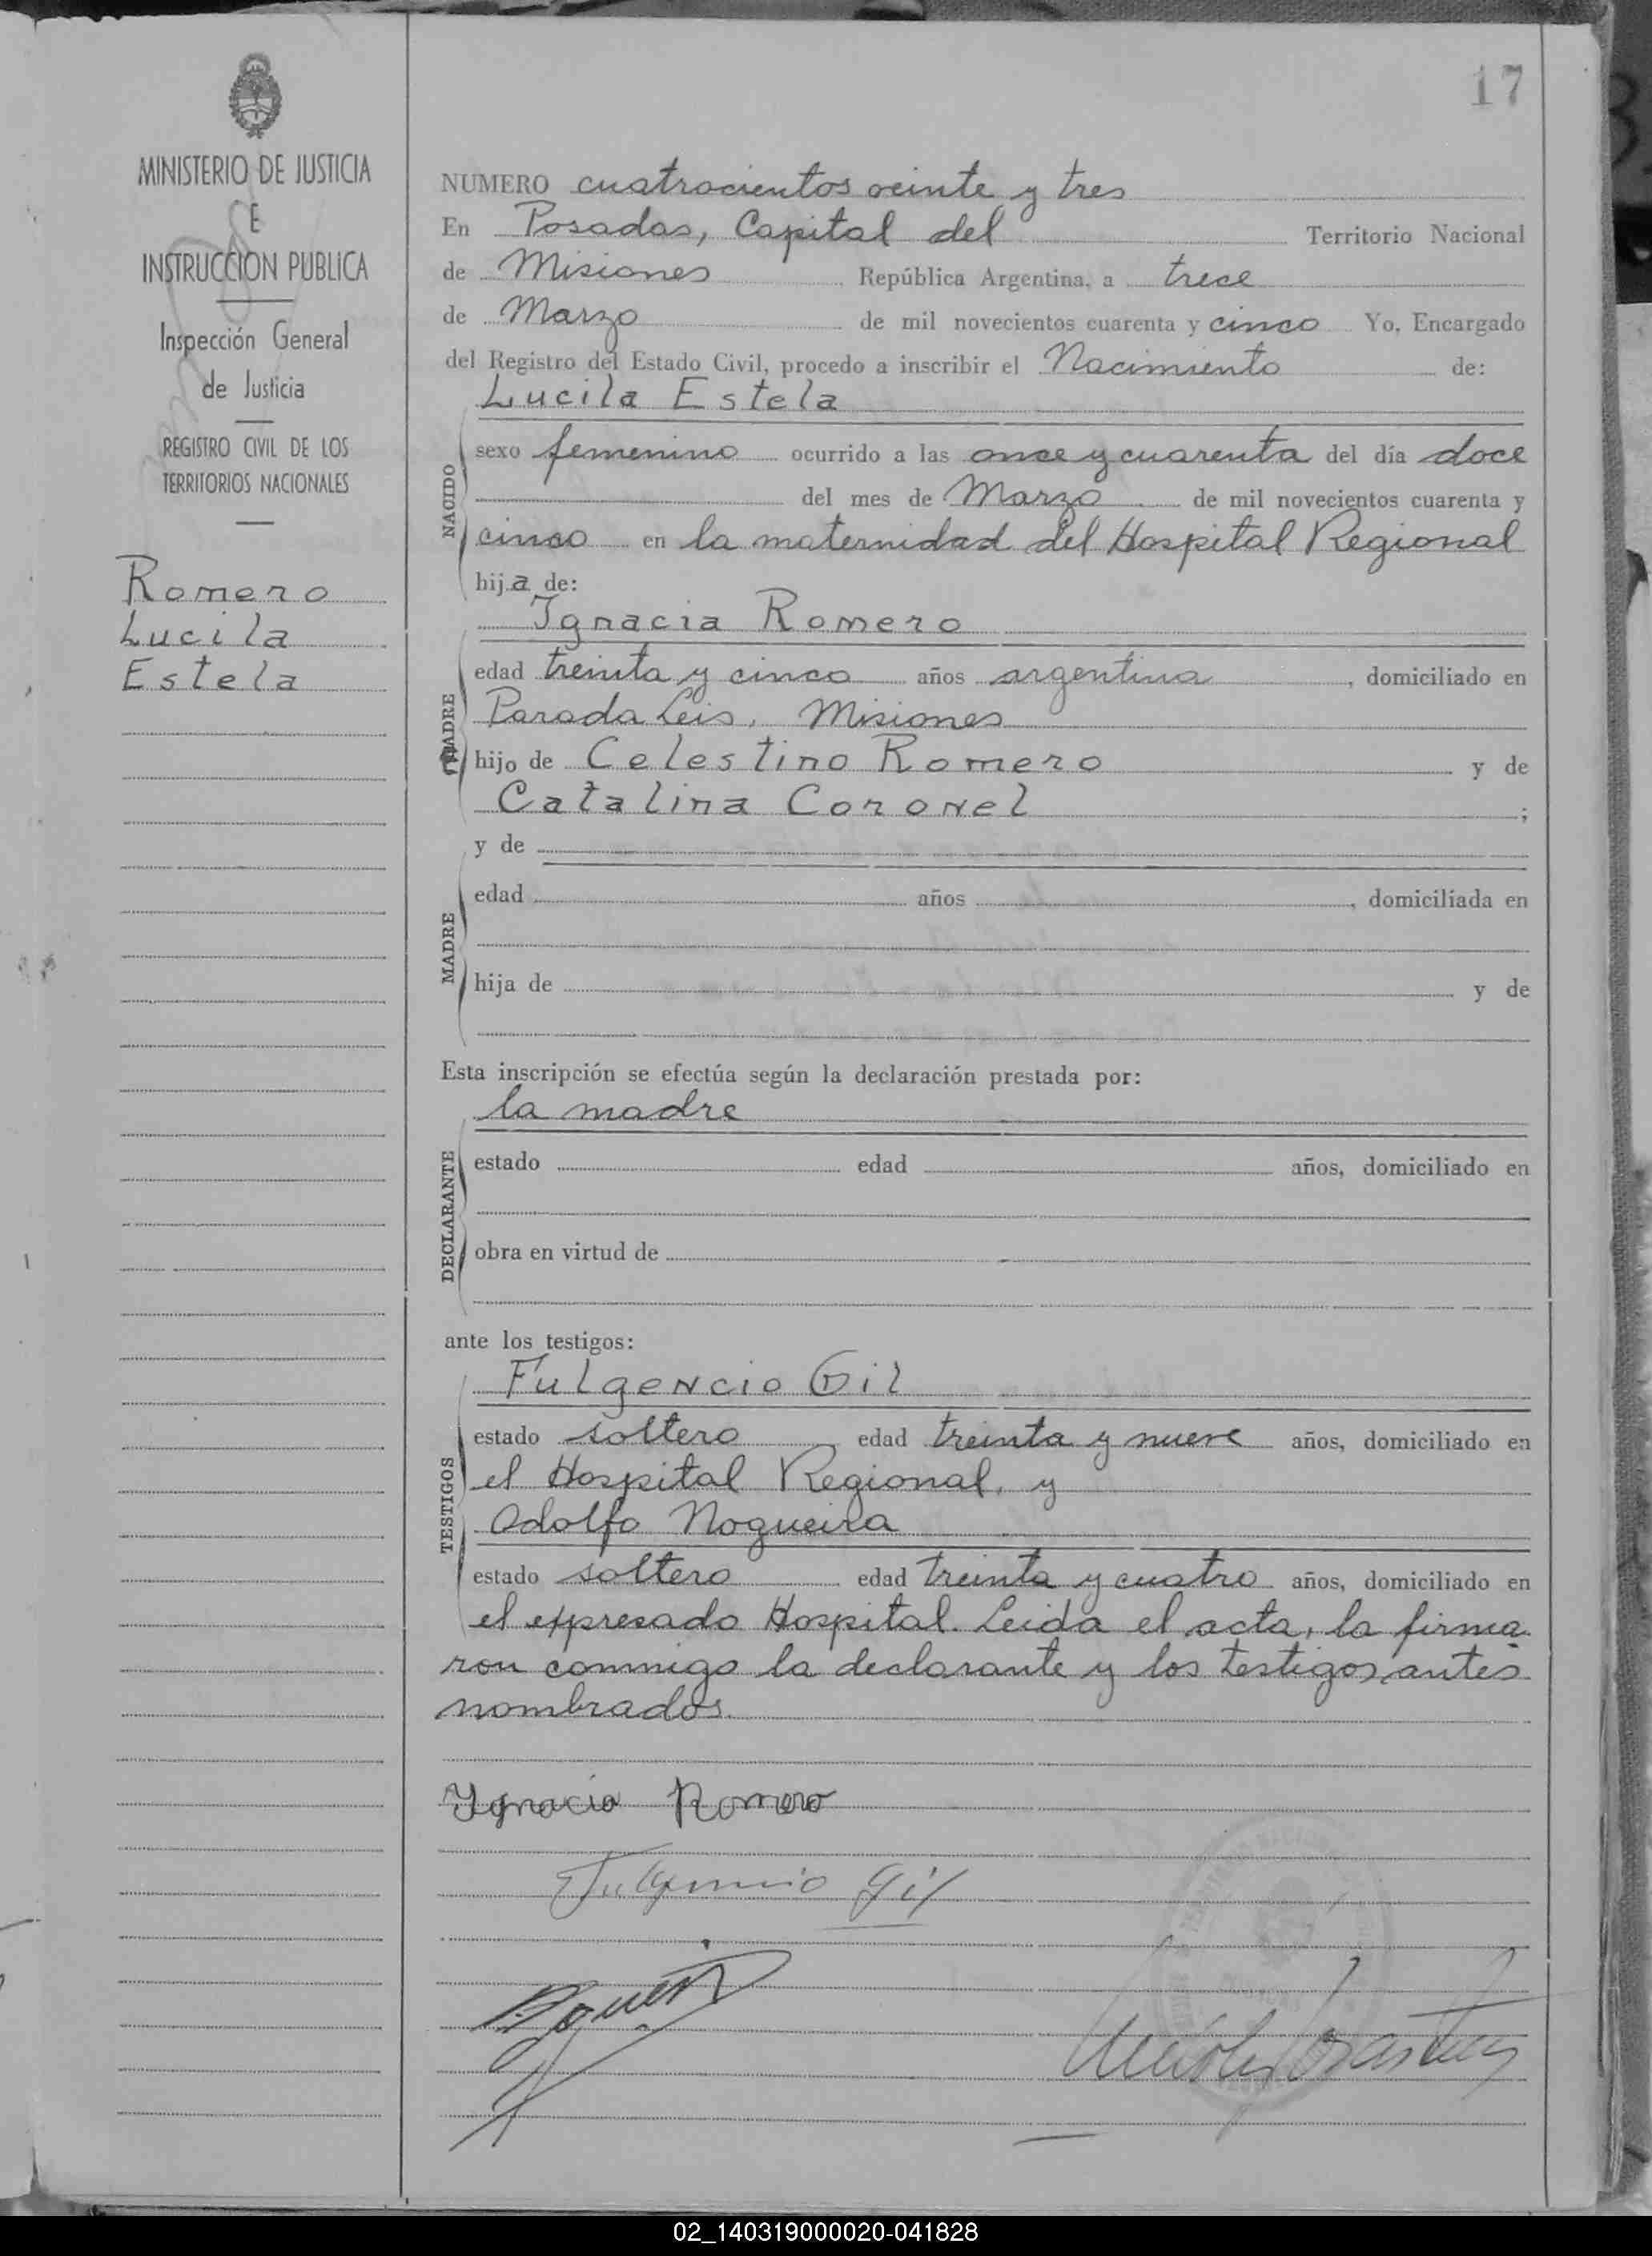 17
MINISTERIO DE JUSTICIA
E
INSTRUCCION PUBLICA
Inspección General
de Justicia
REGISTRO CIVIL DE LOS
TERRITORIOS NACIONALES
Romero
Lucila
Estela
NUMERO cuatrocientos veinte y tres
En Posadas, Capital del Territorio Nacional
de Misiones República Argentina, a trece
de Marzo de mil novecientos cuarenta y cinco Yo, Encargado
del Registro del Estado Civil, procedo a inscribir el Nacimiento de:
Lucila Estela
NACIDO
sexo femenino ocurrido a las once y cuarenta del día doce
del mes de Marzo de mil novecientos cuarenta y
cinco en la maternidad del Hospital Regional
hija de:
Ignacia Romero
edad treinta y cinco años argentina, domiciliado en
Parada Leis, Misiones
MADRE
hijo de Celestino Romero y de
Catalina Coronel;
y de
edad años, domiciliada en
MADRE
hija de y de
Esta inscripción se efectúa según la declaración prestada por:
la madre
DECLARANTE
estado edad años, domiciliado en
obra en virtud de
ante los testigos:
Fulgencio Gil
TESTIGOS
estado soltero edad treinta y nueve años, domiciliado en
el Hospital Regional, y
Adolfo Nogueira
estado soltero edad treinta y cuatro años, domiciliado en
el expresado Hospital. Leida el acta, la firma
ron conmigo la declarante y los testigos antes
nombrados.
Ygnacia Romero
Fulgencio Gil
02_140319000020-041828